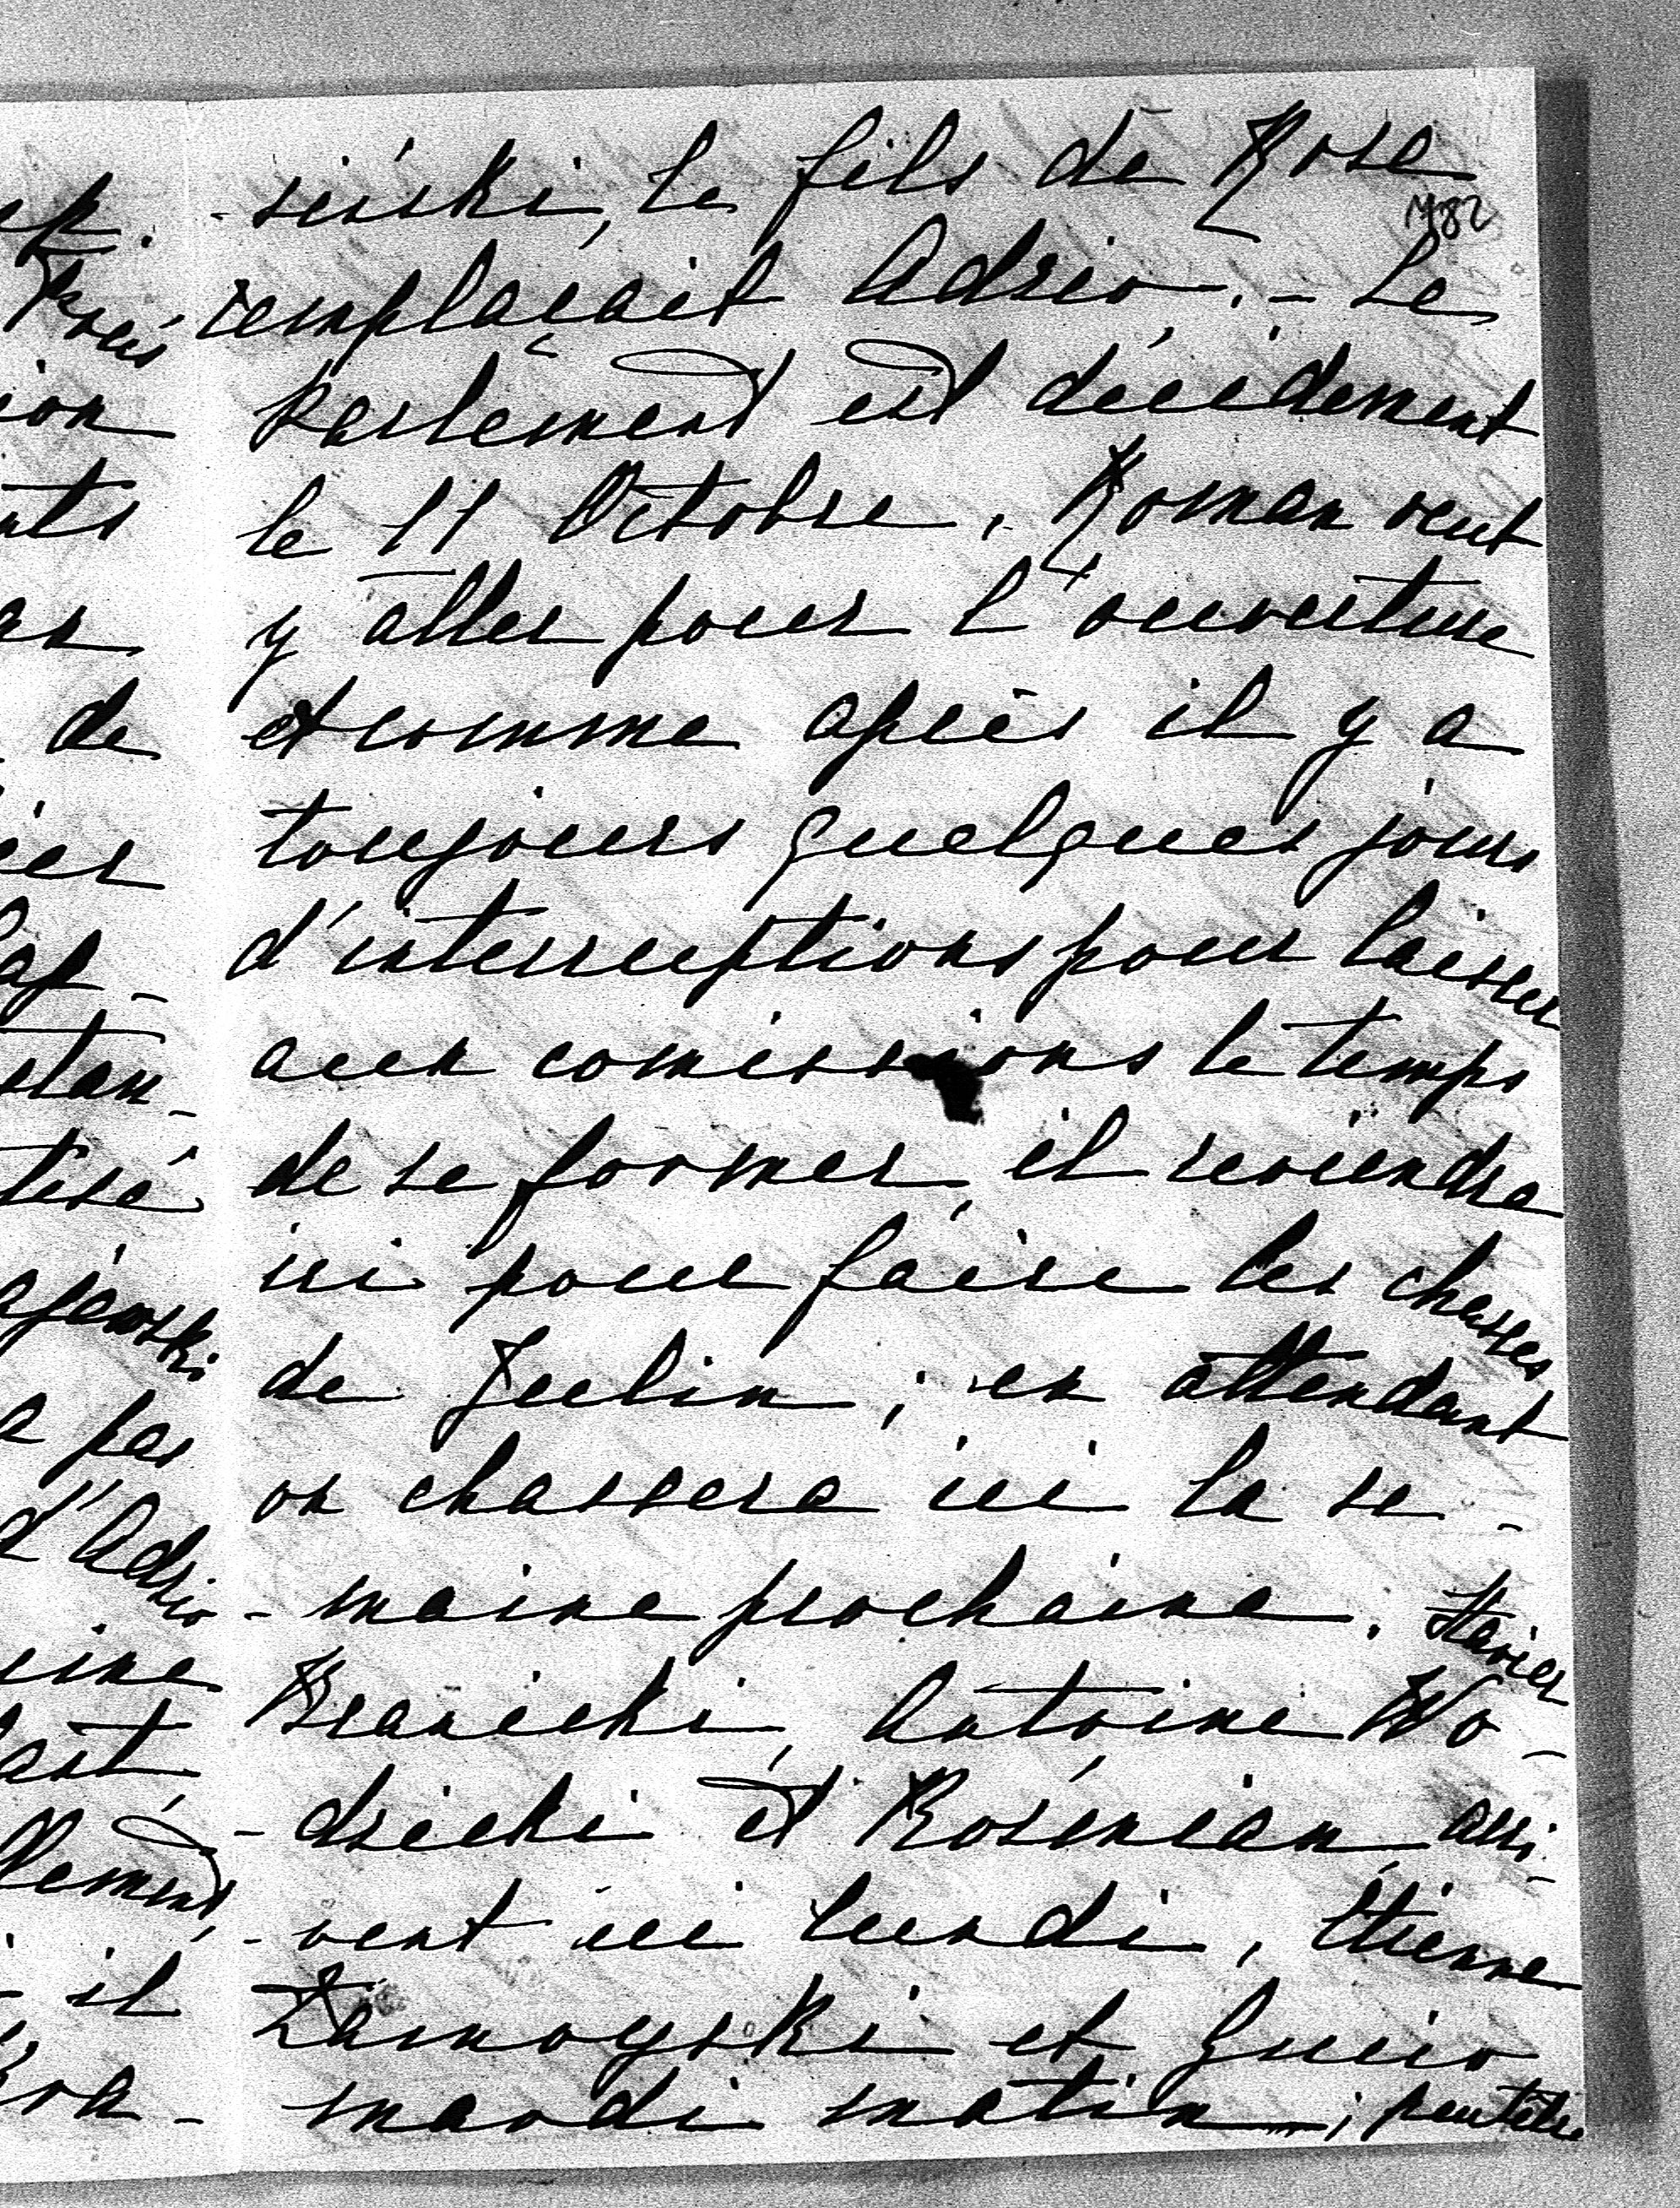 -sinski, le fils de Rose
782
remplaçait Adzio. - Le
Parlement est décidement
le 11 Octobre. Roman veut
y aller pour l'ouverture
et comme après il y a
toujours quelques jours
d'interruptions pour laisser
aux comissions le temps
de se former, il reviendra
ici pour faire les chasses
de Julin; en attendant
on chassera ici la se-
-maine prochaine. Xavier
Branicki, Antoine Wo-
-dzicki et arri-
-vent ici lundi, Etienne
Zamoyski et Gucio
mardi matin; peutêtre
ion
nts
de
stan-
ajewski
a pas
d'Adzio
llement,
il